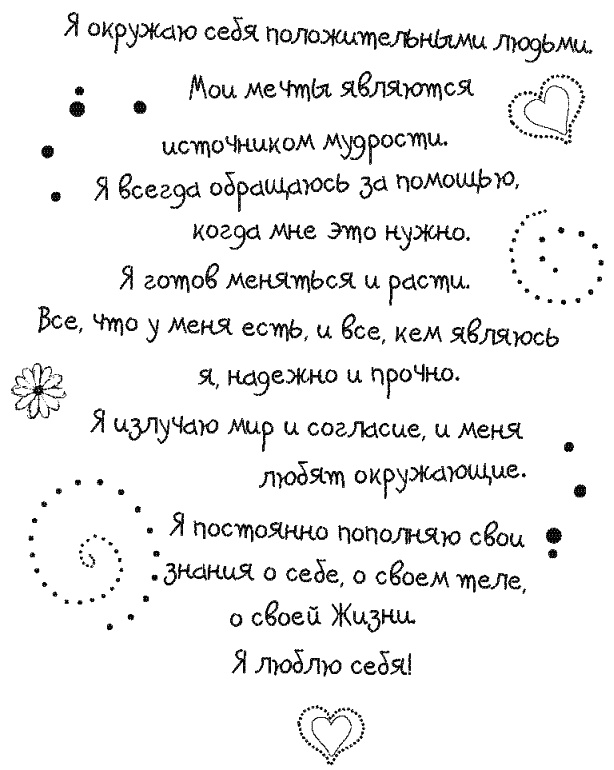 Я окружаю себя положительными людьми.
Мои мечты являются
источником мудрости.
Я всегда обращаюсь за помощью,
когда мне это нужно.
Я готов меняться и расти.
Все, что у меня есть, и все, кем являюсь
я, надежно и прочно.
Я излучаю мир и согласие, и меня
любят окружающие.
Я постоянно пополняю свои
знания о себе, о своем теле,
о своей Жизни.
Я люблю себя!